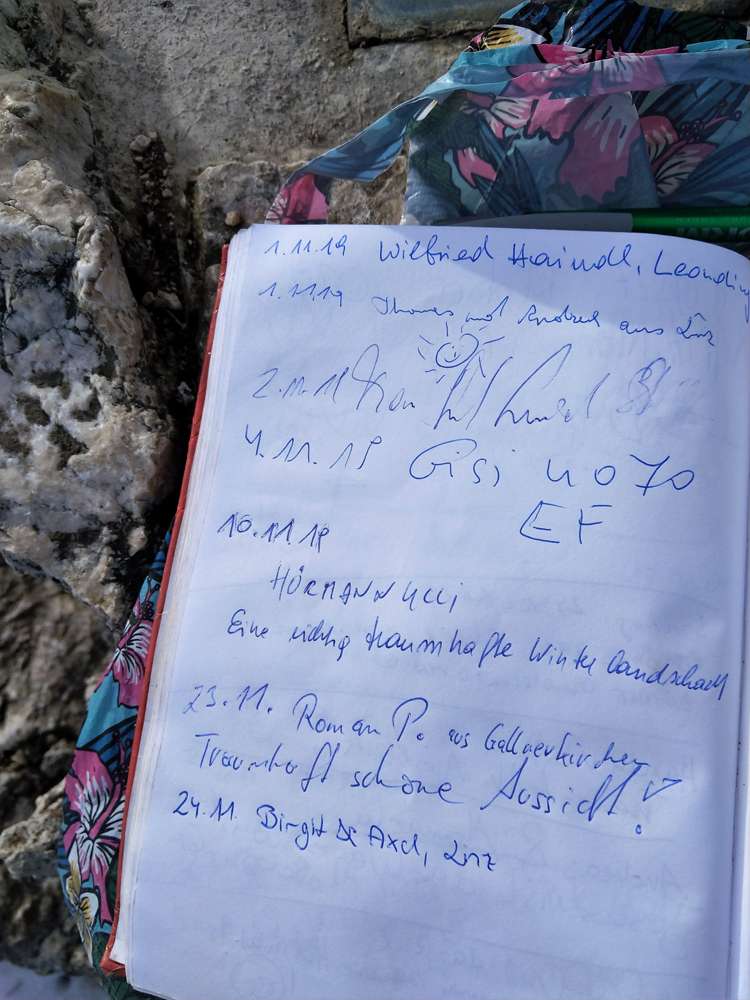 1.11.19 Wilfried Haindl, Leonding
1.11.19 Thomas und aus Linz
2.11.19
4.11.19 Gisi 4070
EF
10.11.19
HÖRMANN ULLI
Eine richtig traumhafte Winterlandschaft
23.11. Roman P. aus Gallneukirchen
Traumhaft schöne Aussicht!
24.11. Birgit & Axel, Linz